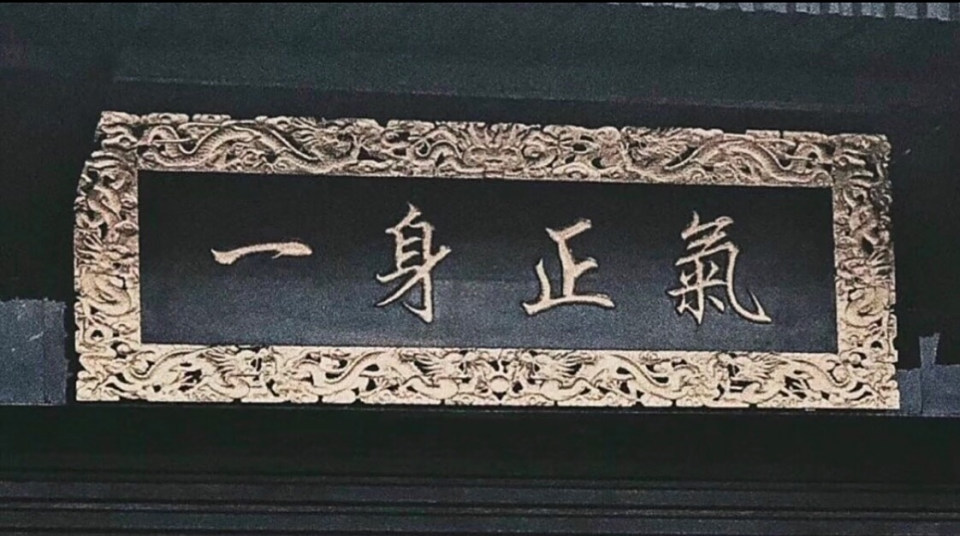 一身正氣